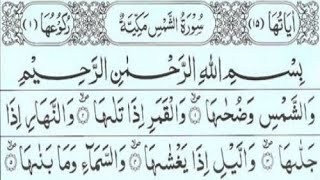 اٰيَاتُهَا (١٥) سُوْرَةُ الشَّمْسِ مَكِّيَّةٌ رُكُوْعُهَا (١)
بِسْمِ اللهِ الرَّحْمٰنِ الرَّحِيْمِ
وَالشَّمْسِ وَضُحٰىهَا ۝١ وَالْقَمَرِ اِذَا تَلٰىهَا ۝٢ وَالنَّهَارِ اِذَا
جَلّٰىهَا ۝٣ وَالَّيْلِ اِذَا يَغْشٰىهَا ۝٤ وَالسَّمَآءِ وَمَا بَنٰىهَا ۝٥